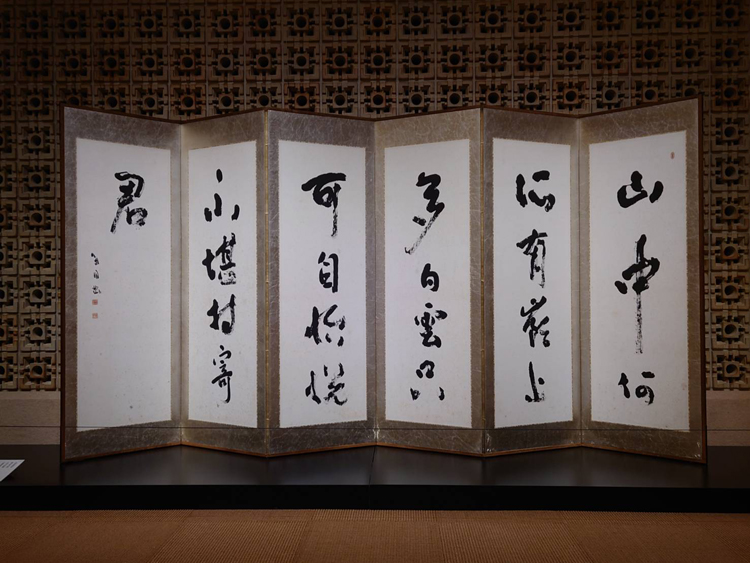 山中何
所有嶺上
多白雲只
可自怡悦
不堪持寄
君